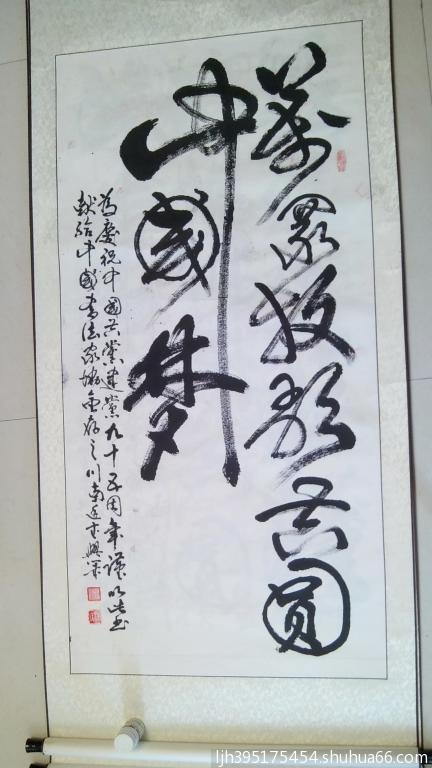 萬眾放歌共圓
中國夢
為慶祝中國共黨建黨九十五周年謹以此書
献给中國書法家
ljh395175454.shuhua66.com